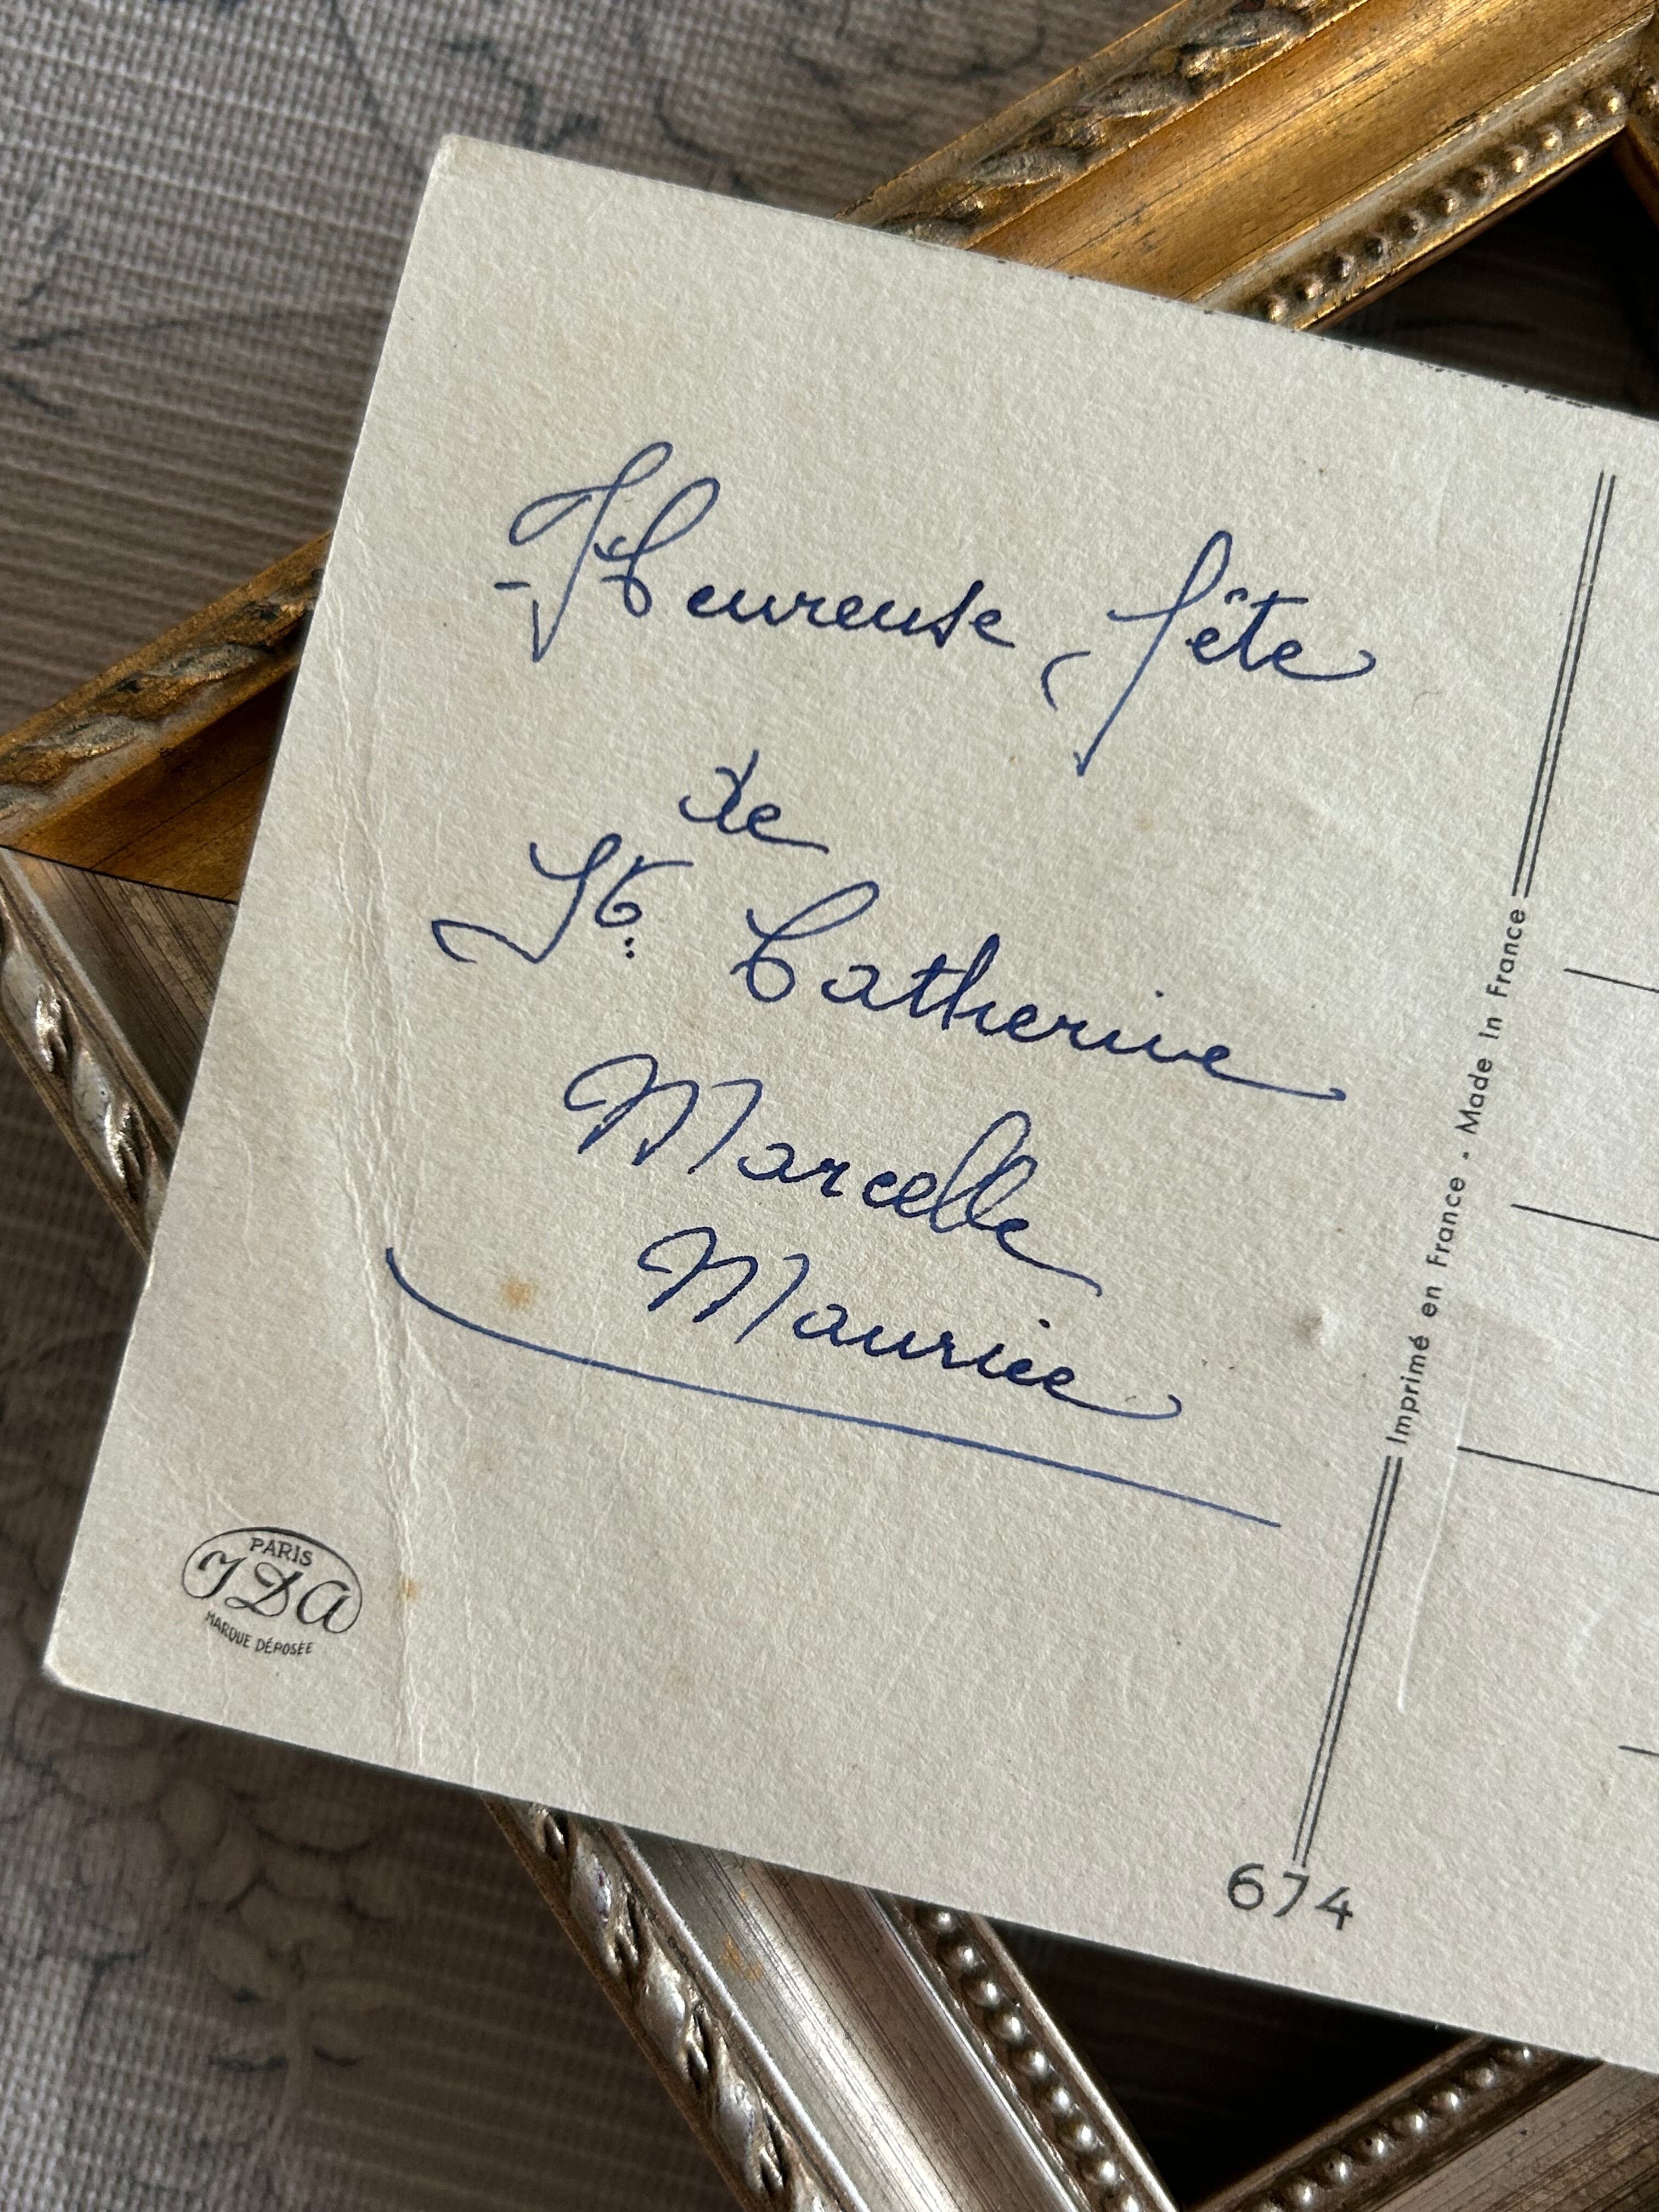 Heureuse fête
de
Ste Catherine
Marcelle
Maurice
PARIS
JDA
MARQUE DÉPOSÉE
Imprimé en France - Made In France
674